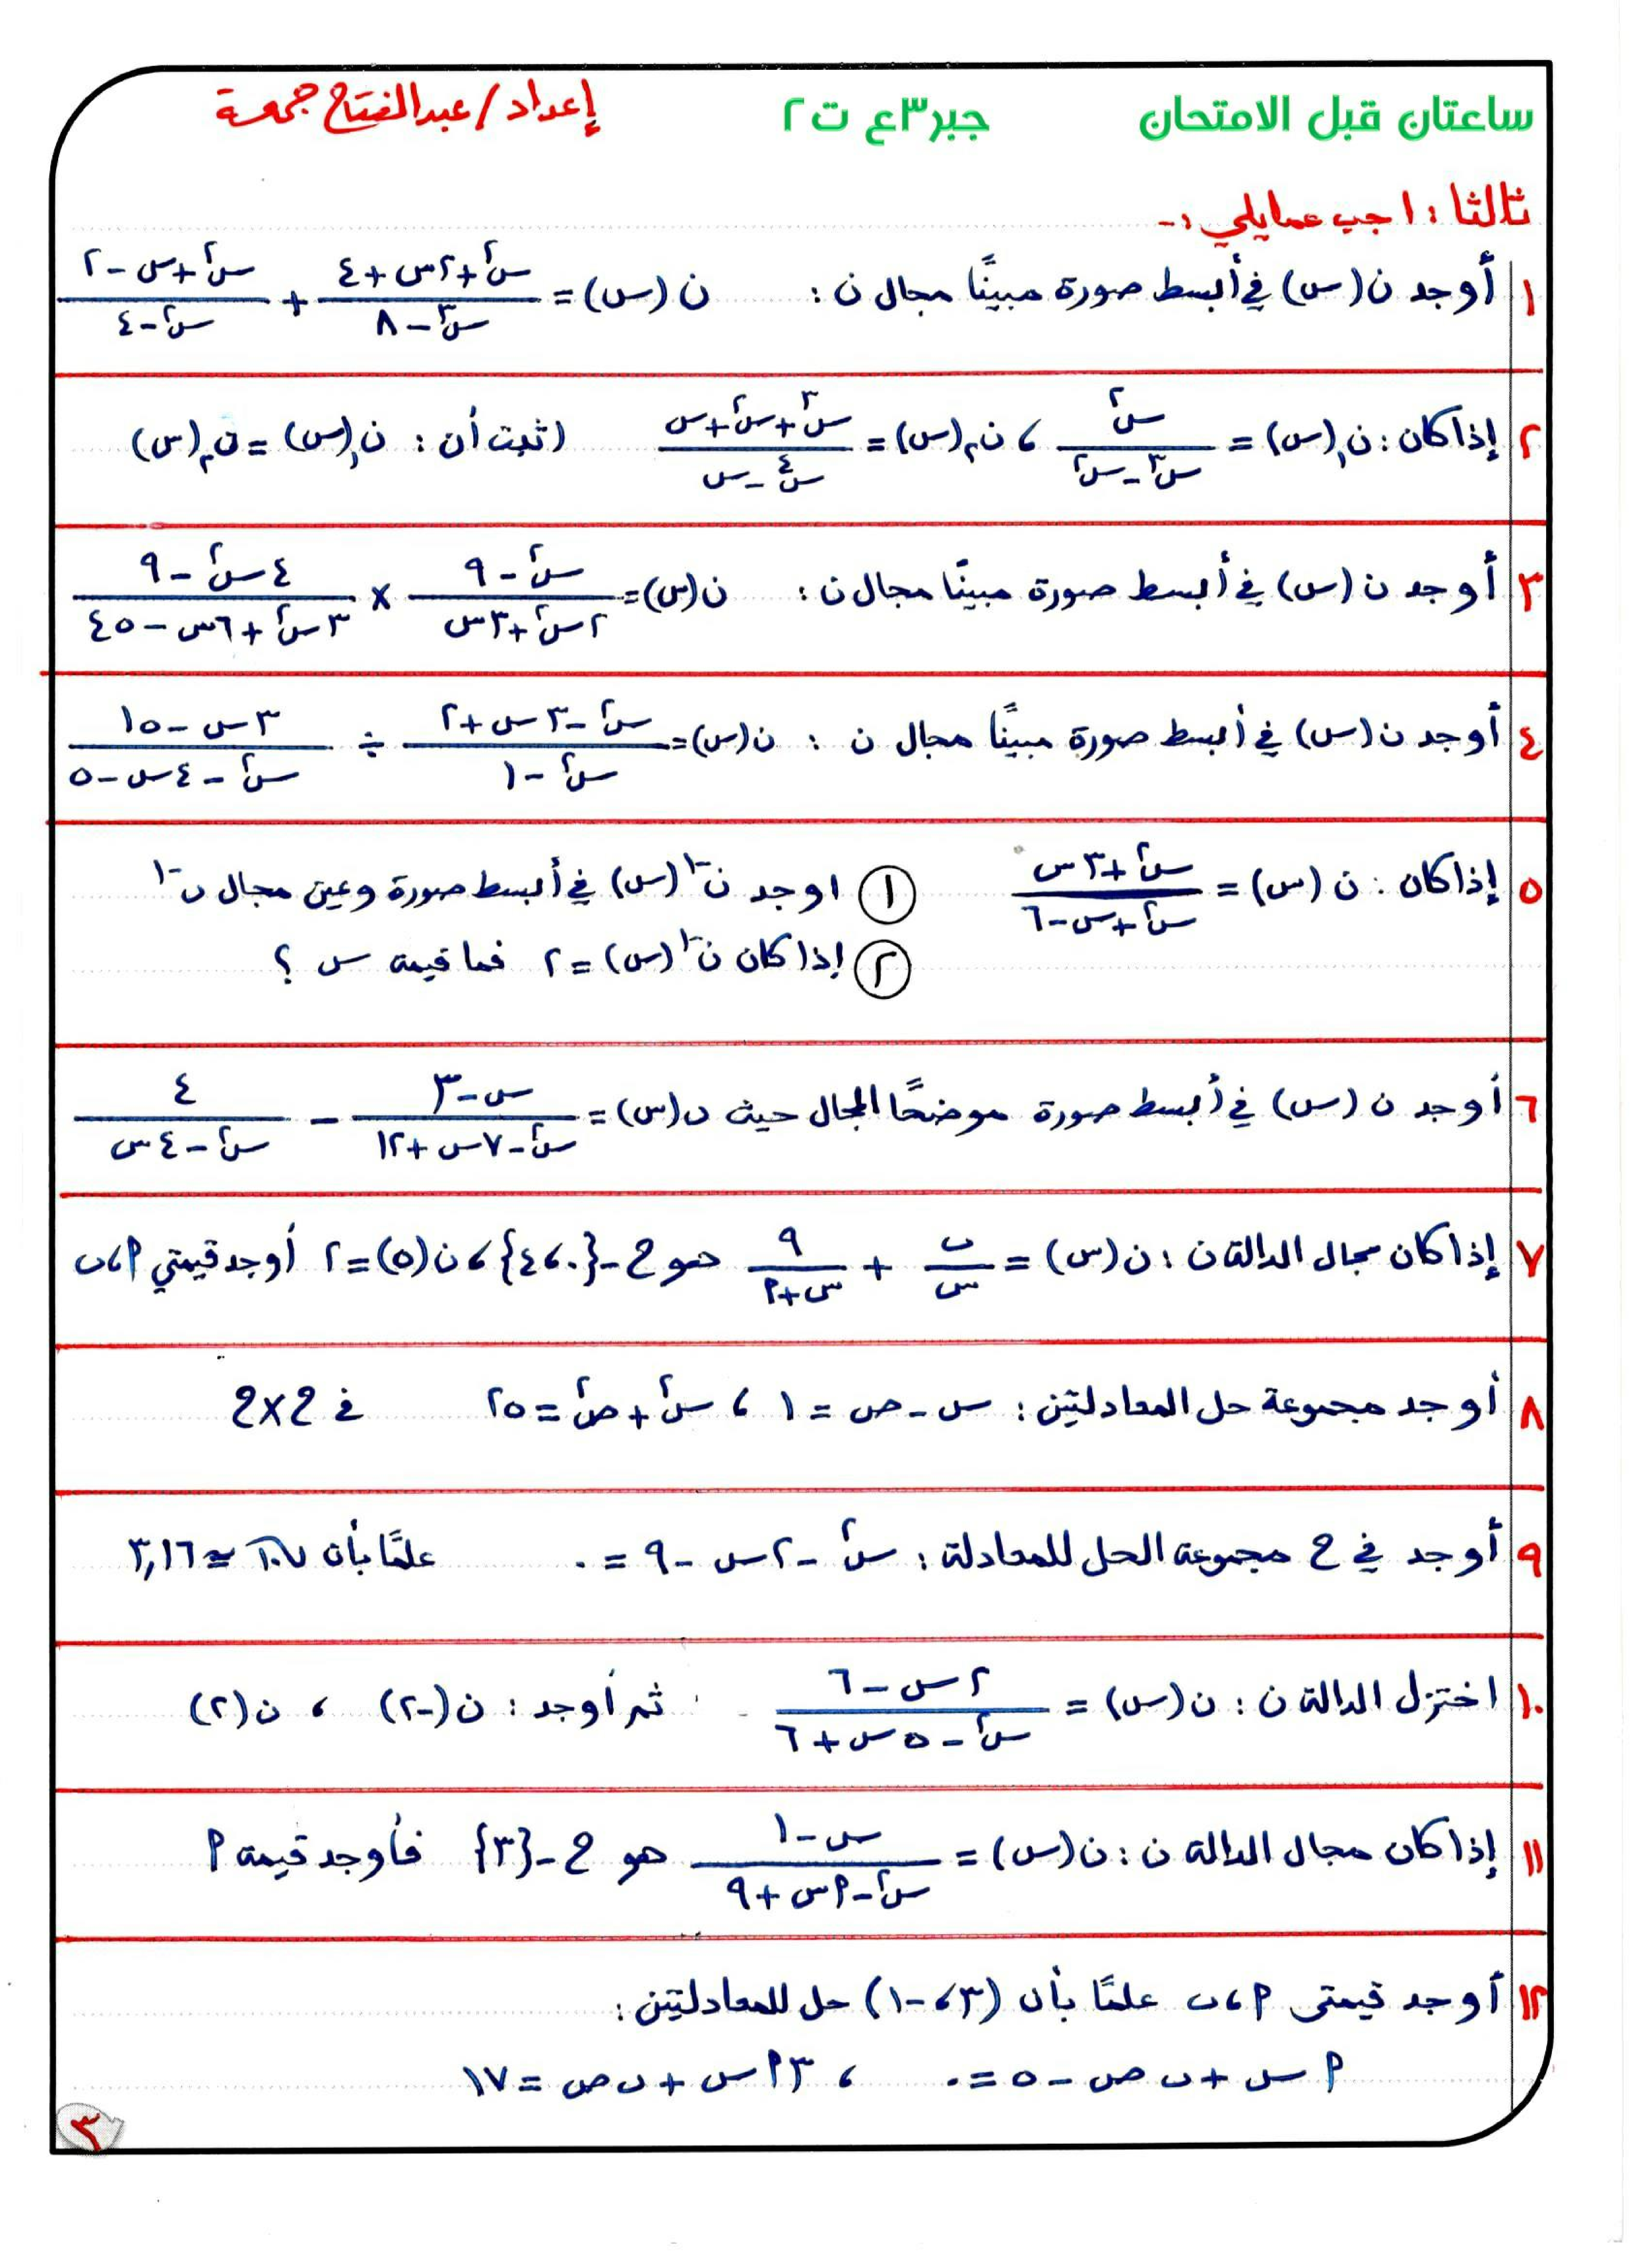 ساعتان قبل الامتحان جبر٣ع ت٢ إعداد/عبدالفتاح جمعة
ثالثا : اجب عمايلي :-
١ أوجد ن(س) في أبسط صورة مبينًا مجال ن : ن(س) = (س٢+٢س+٤)/(س٣-٨) + (س٢+س-٢)/(س٢-٤)
٢ إذا كان : ن١(س) = س٢/(س٣-س٢) ، ن٢(س) = (س٣+س٢+س)/(س٤-س) اثبت أن : ن١(س) = ن٢(س)
٣ أوجد ن(س) في أبسط صورة مبينًا مجال ن : ن(س) = (س٢-٩)/(٢س٢+٣س) × (٤س٢-٩)/(٣س٢+٦س-٤٥)
٤ أوجد ن(س) في أبسط صورة مبينًا مجال ن : ن(س) = (س٢-٣س+٢)/(س٢-١) ÷ (٣س-١٥)/(س٢-٤س-٥)
٥ إذا كان : ن(س) = (س٢+٣س)/(س٢+س-٦) ① اوجد ن-١(س) في أبسط صورة وعين مجال ن-١
② إذا كان ن-١(س) = ٢ فما قيمة س ؟
٦ أوجد ن(س) في أبسط صورة موضحًا المجال حيث ن(س) = (س-٣)/(س٢-٧س+١٢) - ٤/(س٢-٤س)
٧ إذا كان مجال الدالة ن : ن(س) = ب/س + ٩/(س+٢م) هو ح-{٠،٤} ، ن(٥) = ٢ أوجد قيمتي م،ب
٨ أوجد مجموعة حل المعادلتين : س-ص = ١ ، س٢+ص٢ = ٢٥ في ح×ح
٩ أوجد في ح مجموعة الحل للمعادلة : س٢-٢س-٩ = ٠ علمًا بأن √١٠ ≃ ٣,١٦
١٠ اختزل الدالة ن : ن(س) = (٢س-٦)/(س٢-٥س+٦) ثم أوجد : ن(-٢) ، ن(٢)
١١ إذا كان مجال الدالة ن : ن(س) = (س-١)/(س٢-مس+٩) هو ح-{٣} فأوجد قيمة م
١٢ أوجد قيمتى م،ب علمًا بأن (٣،-١) حل للمعادلتين :
م س + ب ص - ٥ = ٠ ، ٣م س + ب ص = ١٧
٣